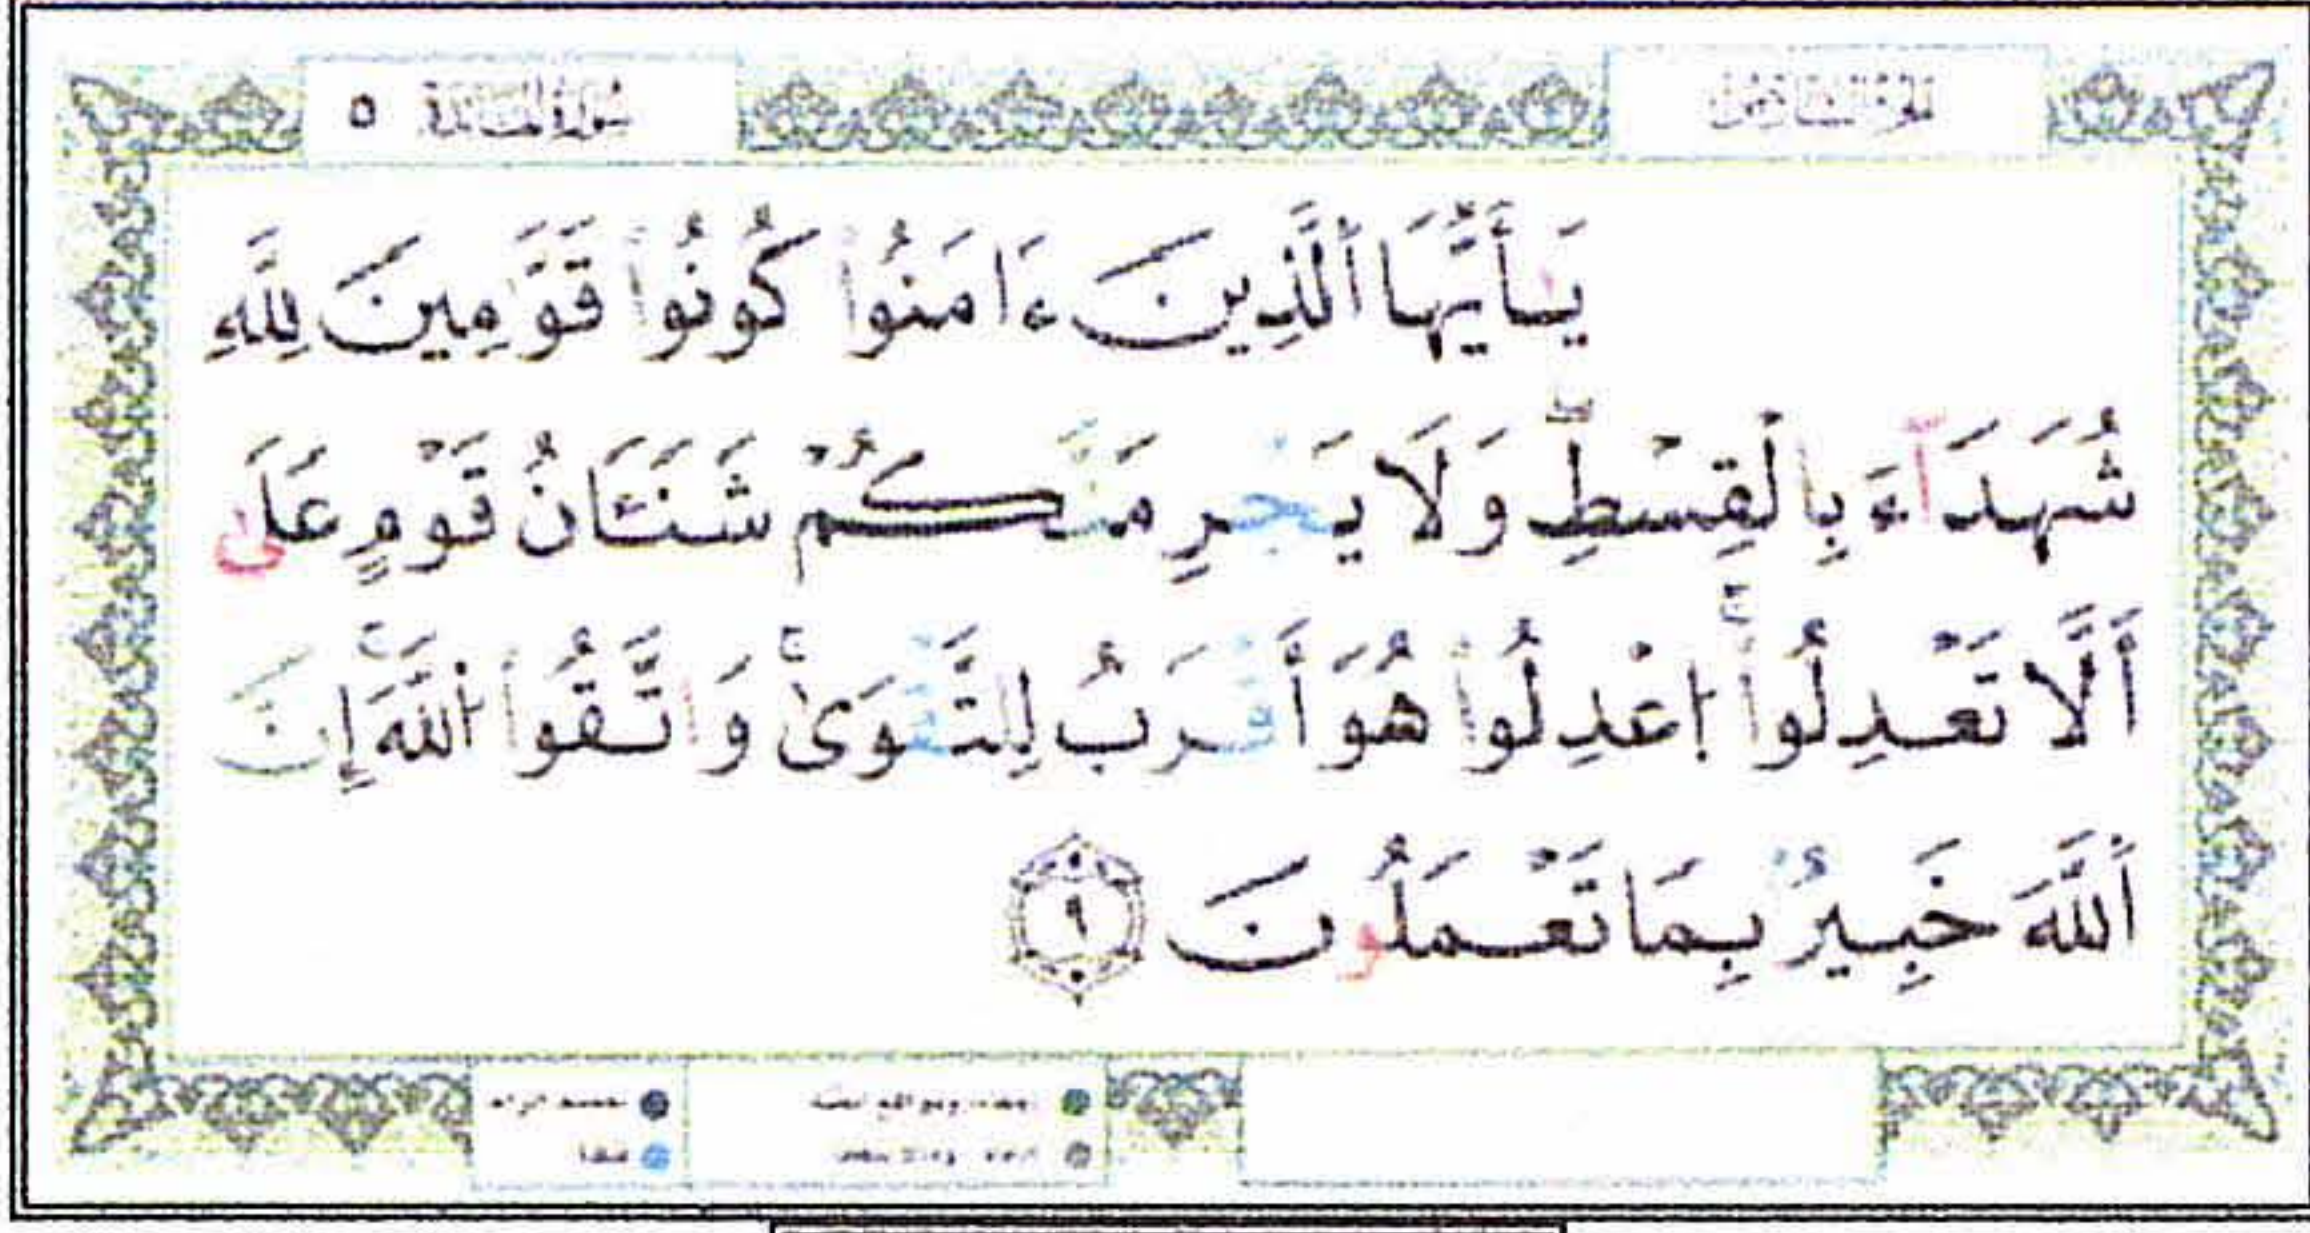 الجزء السادس
سورة المائدة ٥
يَـٰٓأَيُّهَا ٱلَّذِينَ ءَامَنُوا۟ كُونُوا۟ قَوَّٰمِينَ لِلَّهِ
شُهَدَآءَ بِٱلْقِسْطِ ۖ وَلَا يَجْرِمَنَّكُمْ شَنَـَٔانُ قَوْمٍ عَلَىٰٓ
أَلَّا تَعْدِلُوا۟ ۚ ٱعْدِلُوا۟ هُوَ أَقْرَبُ لِلتَّقْوَىٰ ۚ وَٱتَّقُوا۟ ٱللَّهَ ۚ إِنَّ
ٱللَّهَ خَبِيرٌۢ بِمَا تَعْمَلُونَ ٩